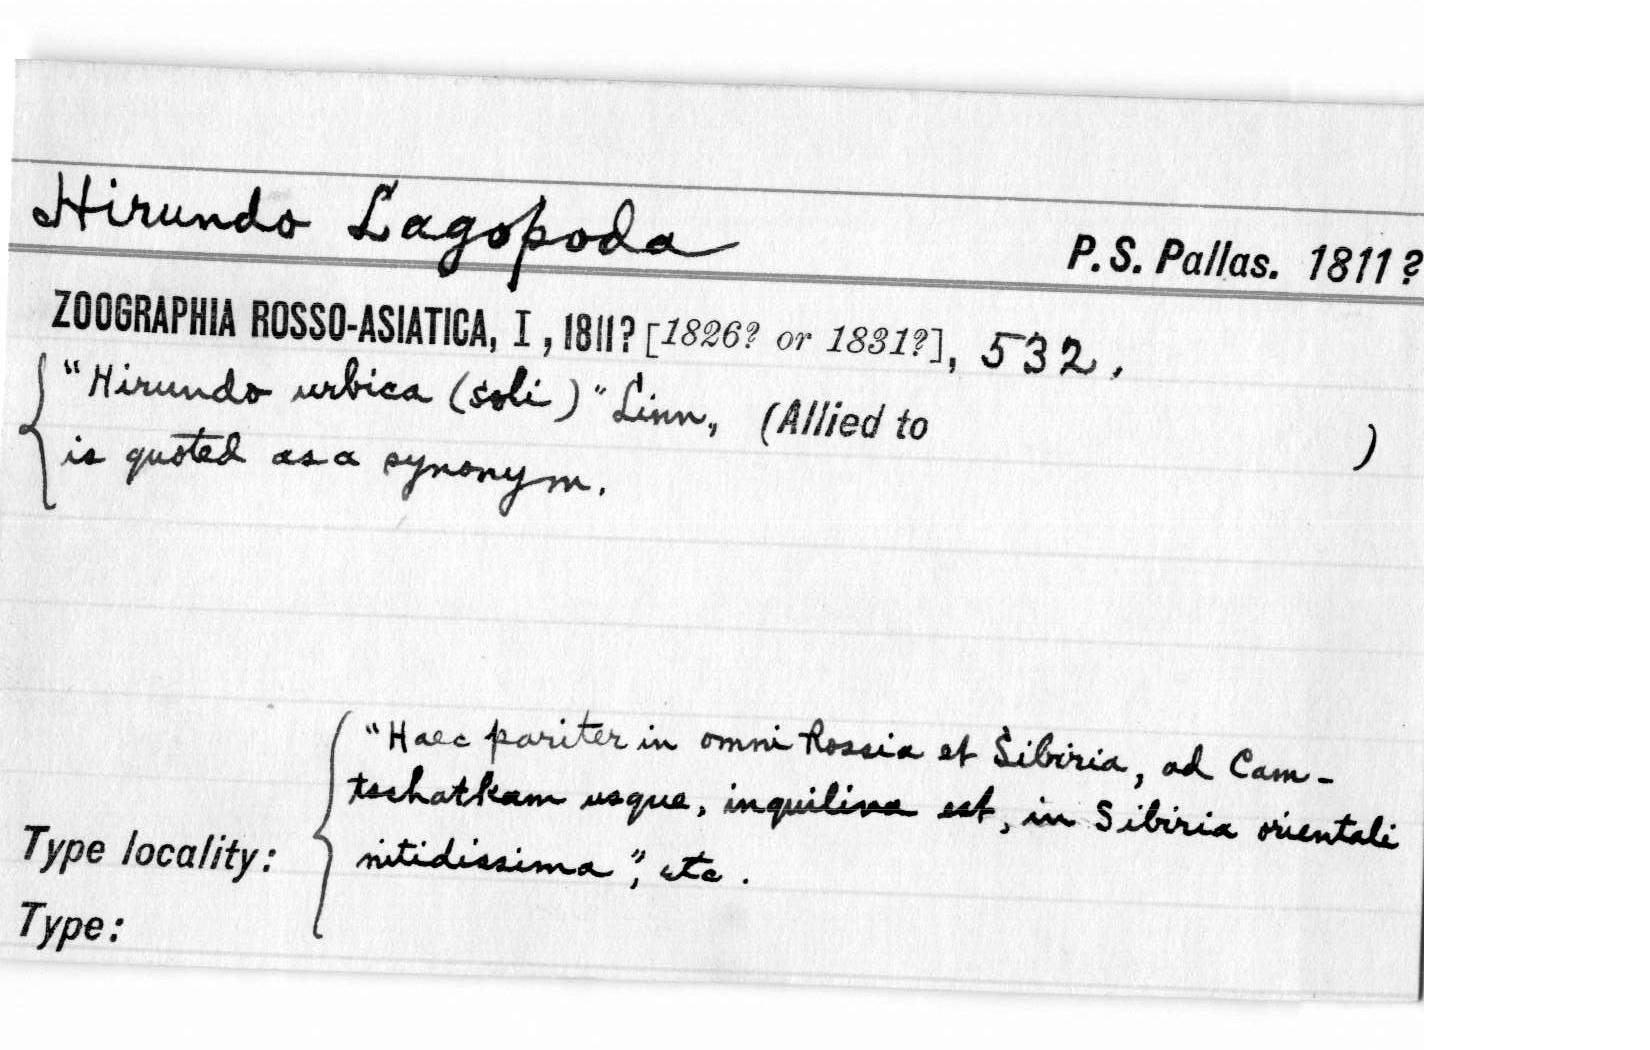 Hirundo Lagopoda
P. S. Pallas. 1811?
ZOOGRAPHIA ROSSO-ASIATICA, I, 1811? [1826? or 1831?], 532.
"Hirundo urbica (soli)" Linn., (Allied to )
is quoted as a synonym.
"Haec pariter in omni Rossia et Sibiria, ad Cam-
tschatkam usque, inquilina est, in Sibiria orientali
Type locality: nitidissima", etc.
Type: